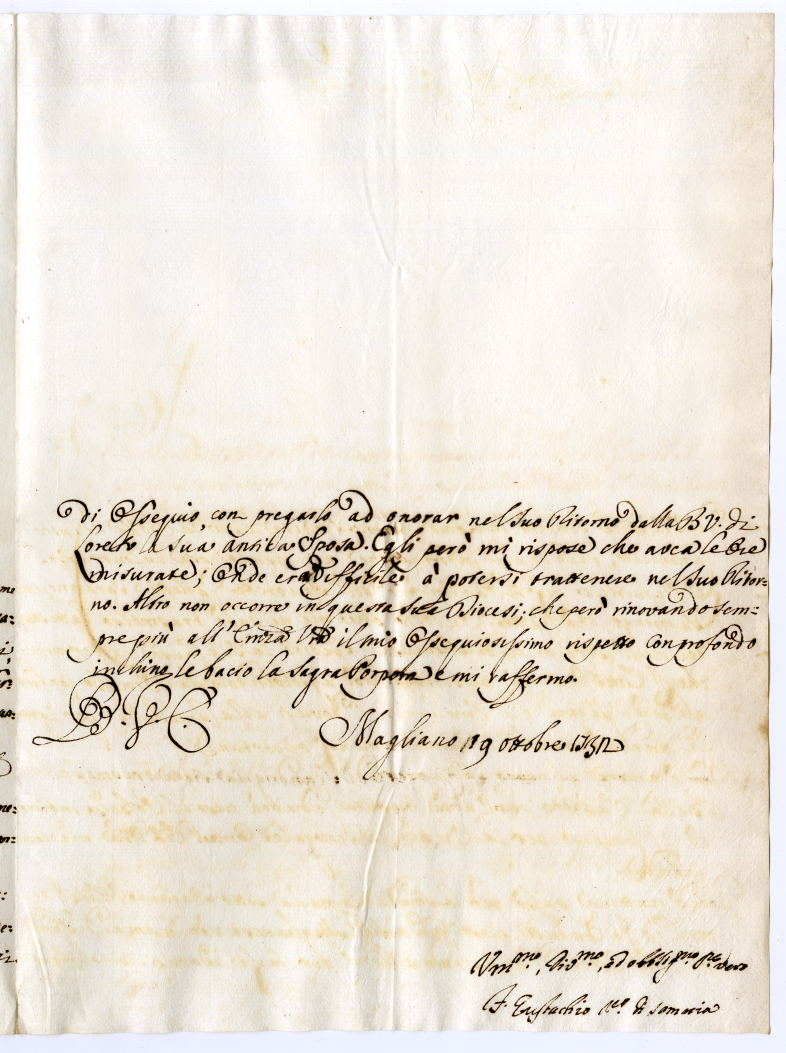 di Ossequio, con pregarlo ad onorar nel suo Ritorno dalla B.V. di
Loreto la sua antica Sposa. Egli però mi rispose che avea le Ore
misurate; Onde era difficile à potersi trattenere nel suo Ritor=
no. Altro non occorre in questa sua Diocesi; che però rinovando sem=
pre più all' Emza Vra il mio Ossequiosissimo rispetto con profondo
inchino le bacio la Sagra Porpora e mi raffermo.
D. V. E.
Magliano 19 ottobre 1732
Vmmo, Divmo, ed obbligmo vero
F. Eustachio Vco di